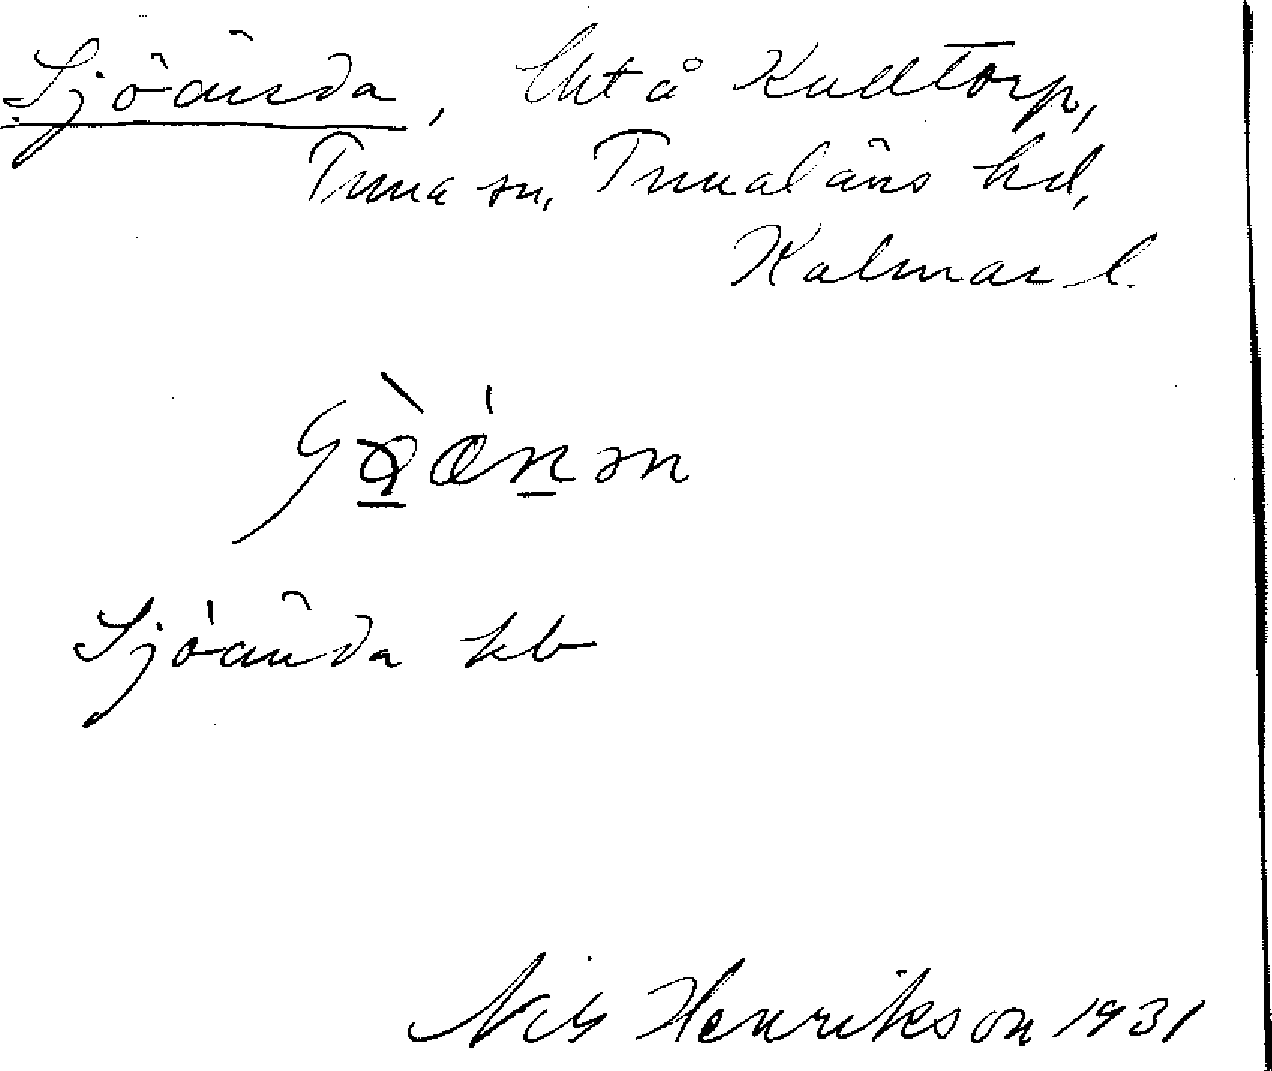 Sjöända, lht å Kulltorp,
Tuna sn, Tunaläns hd,
Kalmar l.
Sjöända kb
Nils Henrikson 1931